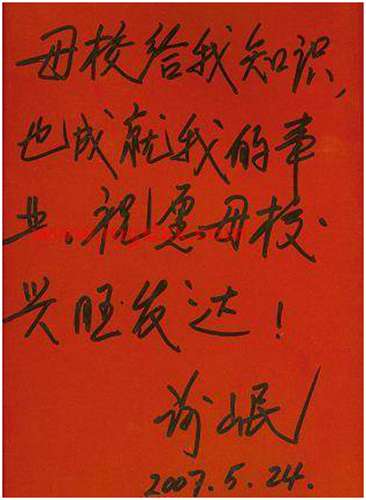 母校给我知识,
也成就我的事
业。祝愿母校
兴旺发达!
2007.5.24.